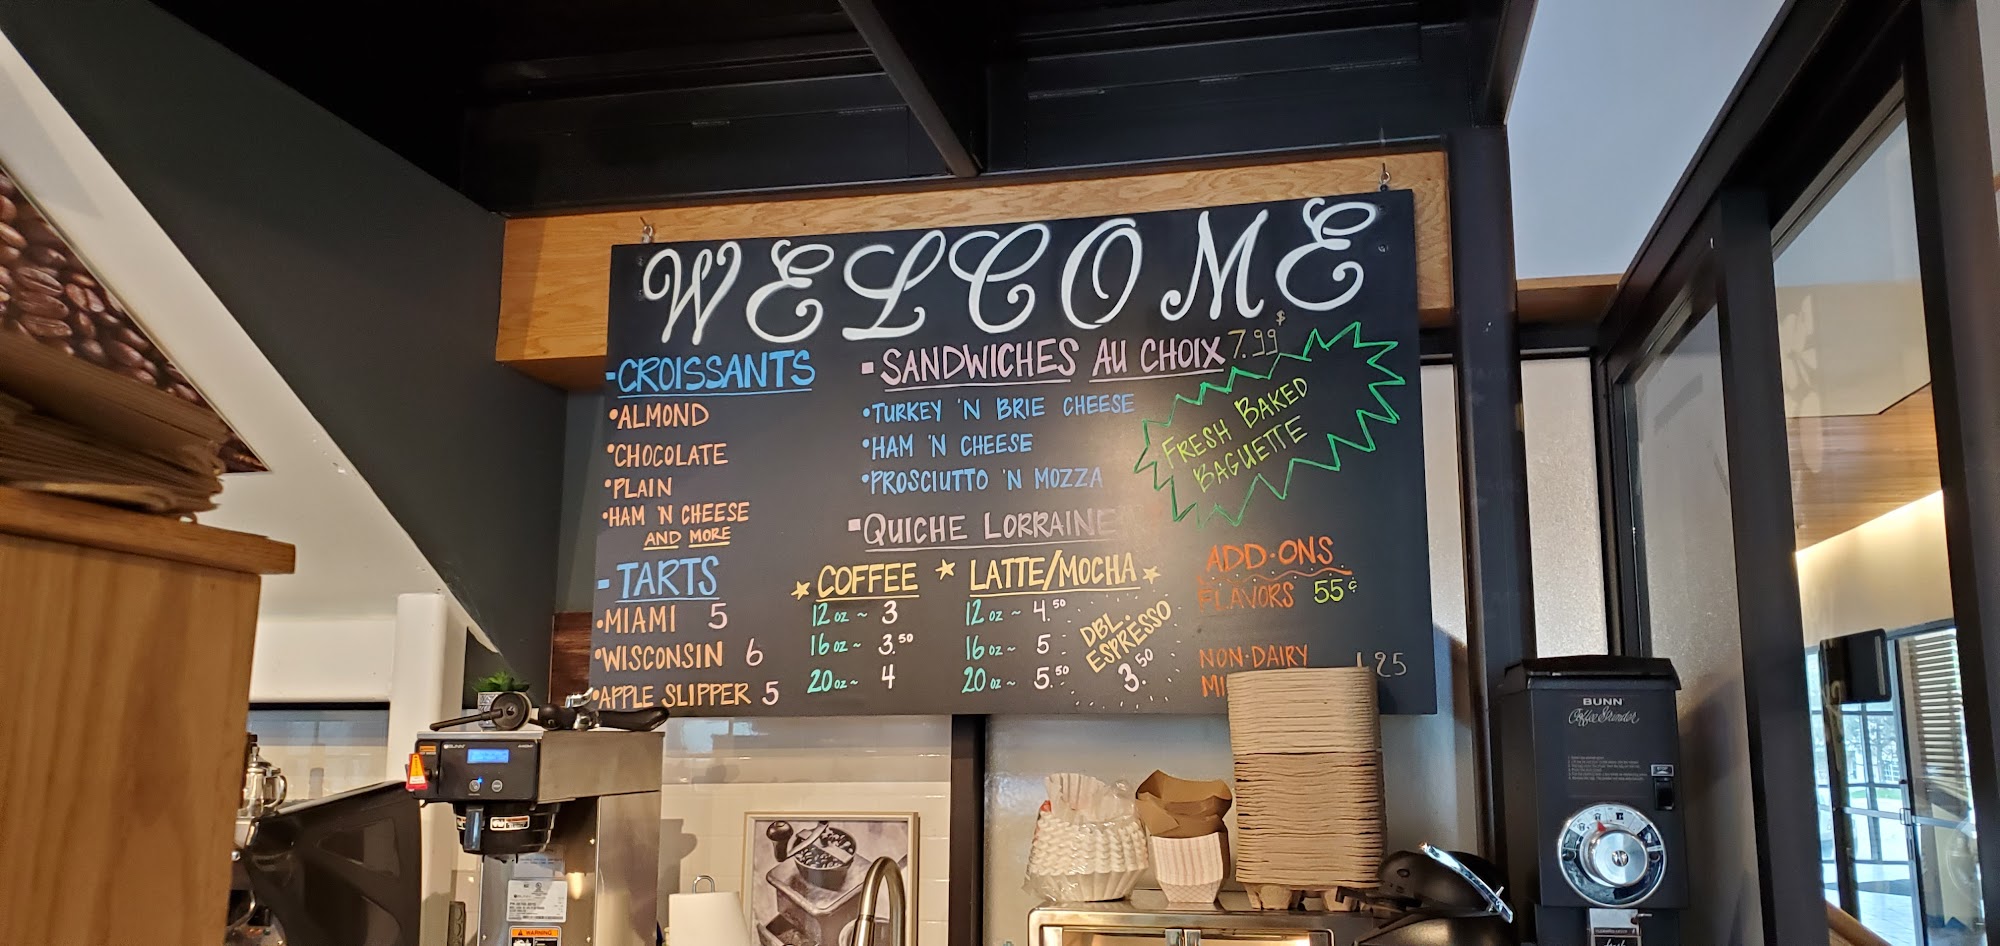 WELCOME
-CROISSANTS
•ALMOND
•CHOCOLATE
•PLAIN
•HAM 'N CHEESE
AND MORE
-TARTS
•MIAMI 5
•WISCONSIN 6
•APPLE SLIPPER 5
-SANDWICHES AU CHOIX 7.99$
•TURKEY 'N BRIE CHEESE
•HAM 'N CHEESE
•PROSCIUTTO 'N MOZZA
FRESH BAKED
BAGUETTE
-QUICHE LORRAINE
COFFEE
12 oz ~ 3
16 oz ~ 3.50
20 oz ~ 4
LATTE/MOCHA
12 oz ~ 4.50
16 oz ~ 5
20 oz ~ 5.50
DBL.
ESPRESSO
3.50
ADD-ONS
FLAVORS 55¢
NON-DAIRY
BUNN
Coffee Grinder
BUNN
WARNING